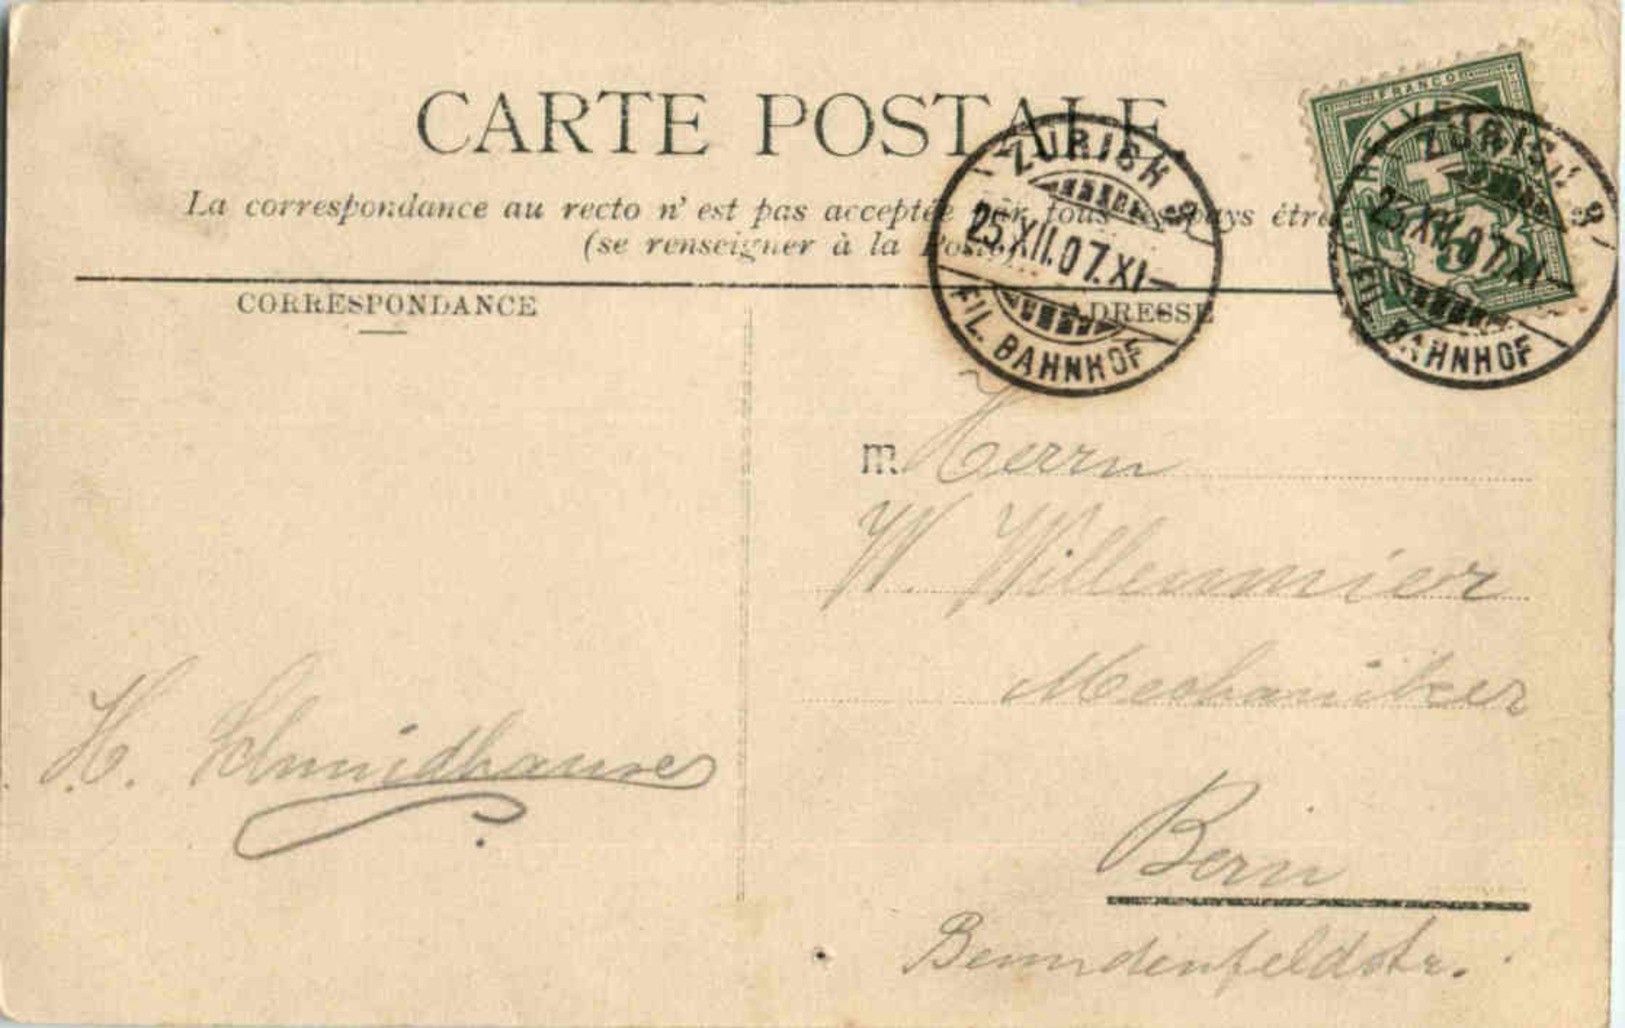 CARTE POSTALE
La correspondance au recto n'est pas acceptée par tous les pays étra
(se renseigner à la Poste)
CORRESPONDANCE
ADRESSE
FRANCO
HELVETIA
ZÜRICH 8
25.XII.07.XI
FIL. BAHNHOF
ZÜRICH 8
25.XII.07.XI
FIL. BAHNHOF
m. Herrn
W. Willenmier
Mechaniker
H. Schmidhauser
Bern